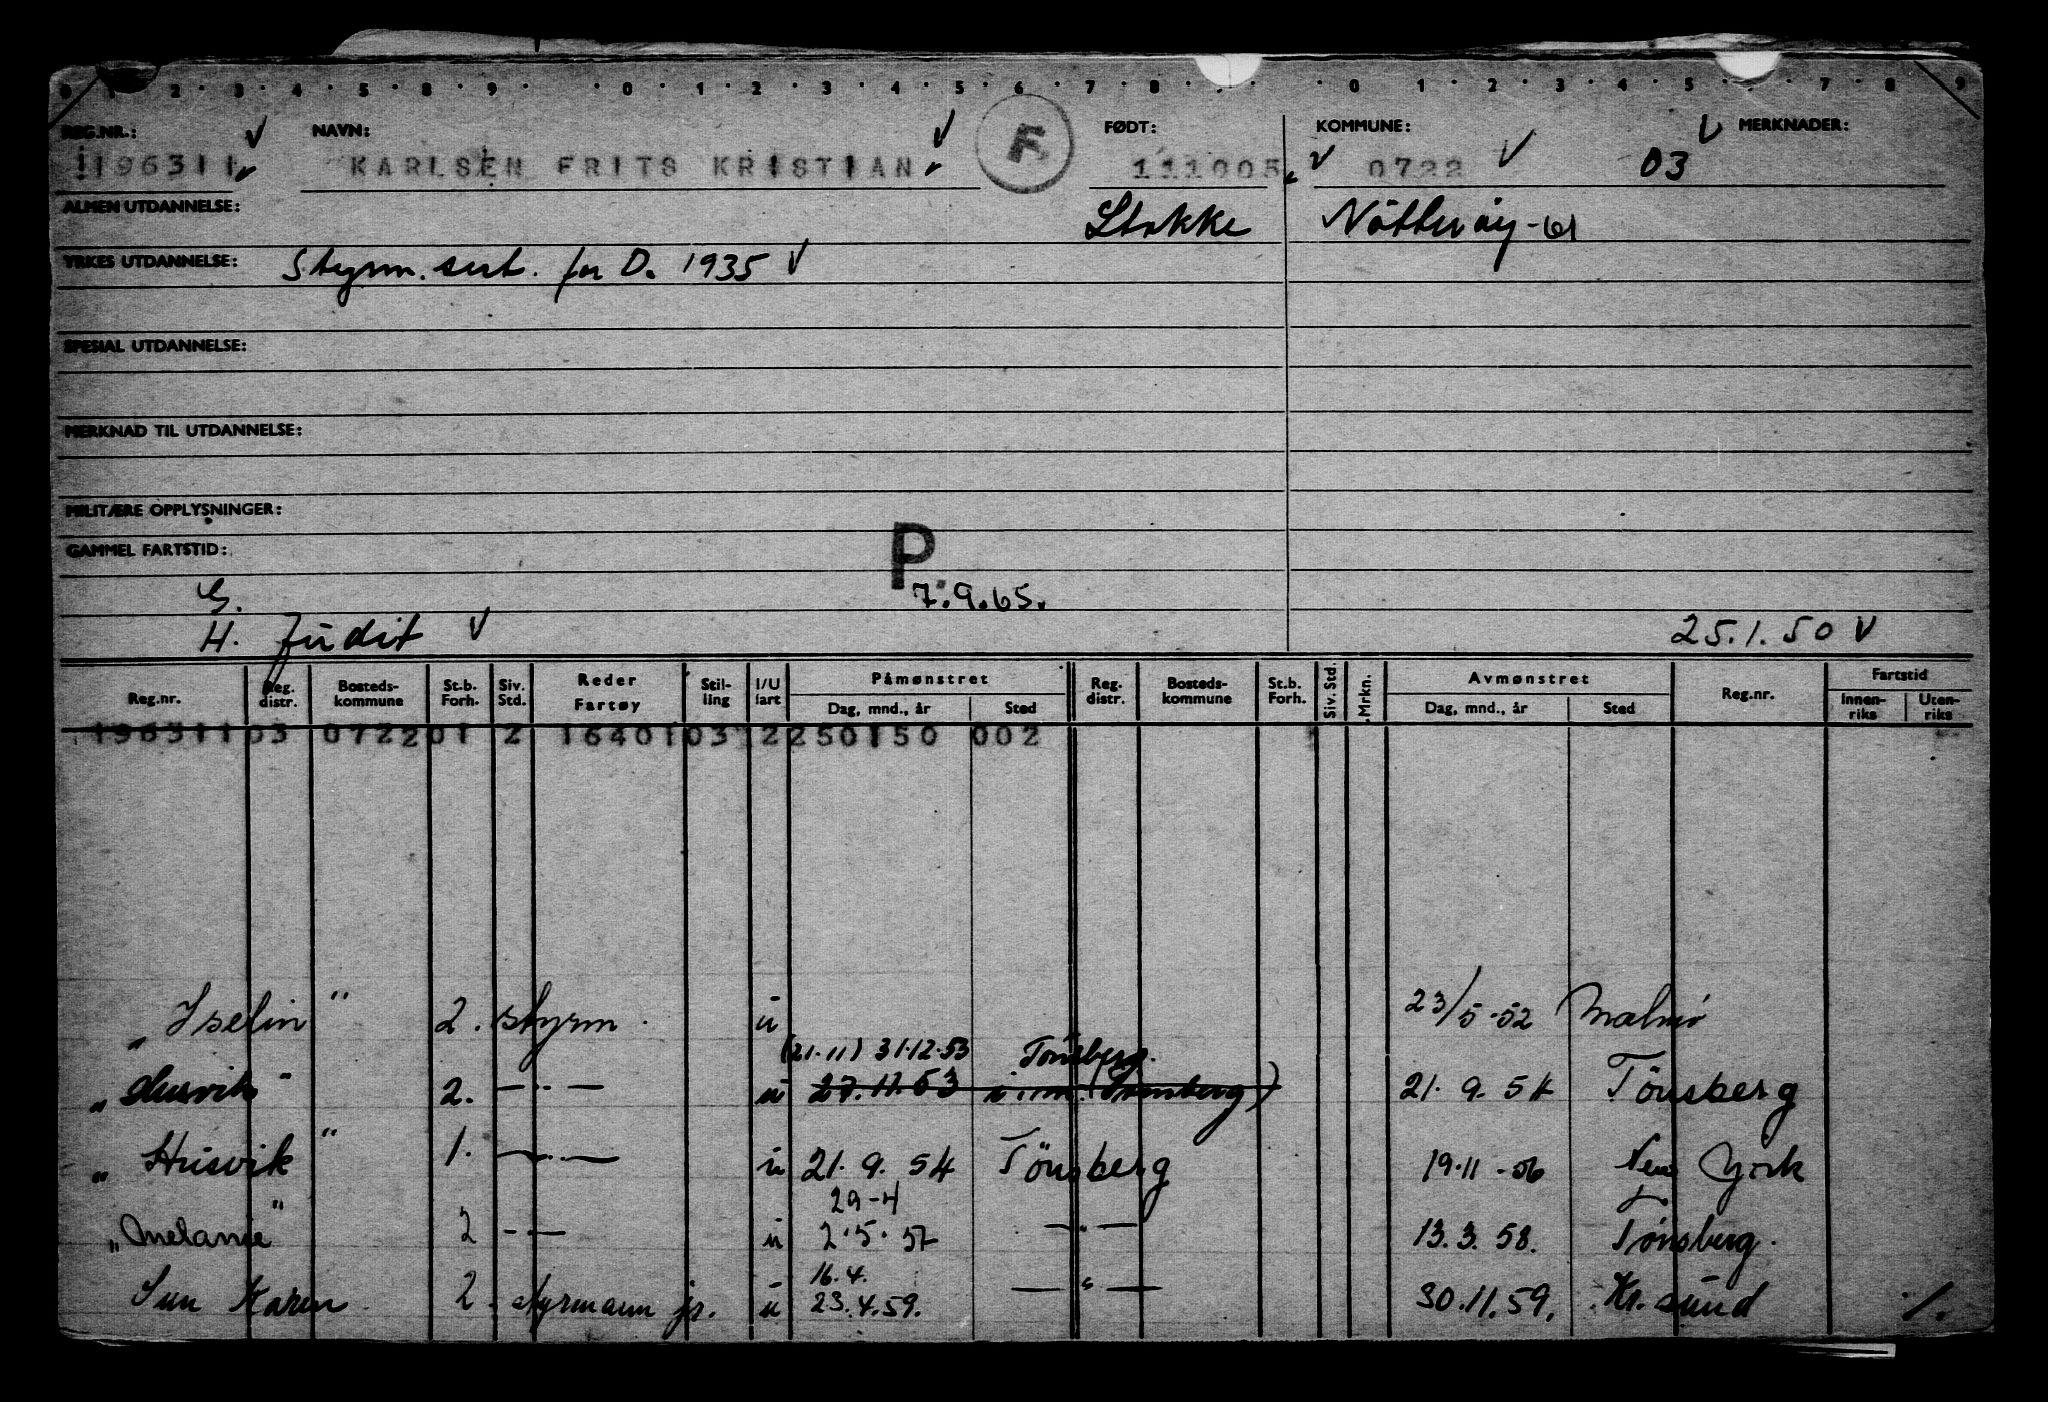 0 1 2 3 4 5 8 9 0 1 2 3 4 5 6 7 8 0 1 2 3 4 5 7 8 9
REG.NR.: NAVN: FØDT: KOMMUNE: MERKNADER:
196311 KARLSEN FRITS KRISTIAN F 111005 0722 03
ALMEN UTDANNELSE: Stokke Nötteröy-61
YRKES UTDANNELSE: Styrm. sert. for D. 1935
SPESIAL UTDANNELSE:
MERKNAD TIL UTDANNELSE:
MILITÆRE OPPLYSNINGER:
GAMMEL FARTSTID: P
G. 7.9.65.
H. Judit 25.1.50
Reg.nr. Reg. distr. Bosteds-kommune St.b. Forh. Siv. Std. Reder Fartøy Stil-ling I/U fart Påmønstret Dag, mnd., år Sted Reg. distr. Bosteds-kommune St.b. Forh. Siv. Std. Mrkn. Avmønstret Dag, mnd., år Sted Reg.nr. Fartstid Innen-riks Uten-riks
196311 03 0722 01 2 16401 03 2 250150 002
"Iselin" 2. styrm. u 23/5-52 Malmö
(21.11) 31.12.53 Tönsberg.
"Husvik" 2. —"— u 27.11.53 i.m. (Tønsberg) 21.9.54 Tönsberg
"Husvik" 1. —"— u 21.9.54 Tönsberg 19.11-56 New York
29-4
"Melanie" 2 —"— u 2.5.57 —"— 13.3.58. Tønsberg.
16.4.
Sun Karen 2. styrmann jr. u 23.4.59. —"— 30.11.59. Kr.sund ./.